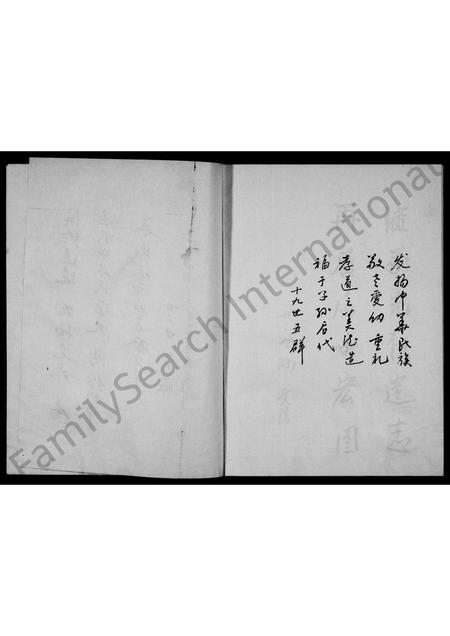 发扬中华民族
敬老爱幼重礼
孝道之美德造
福于子孙后代
十九世五群
宏图
遗志
FamilySearch International